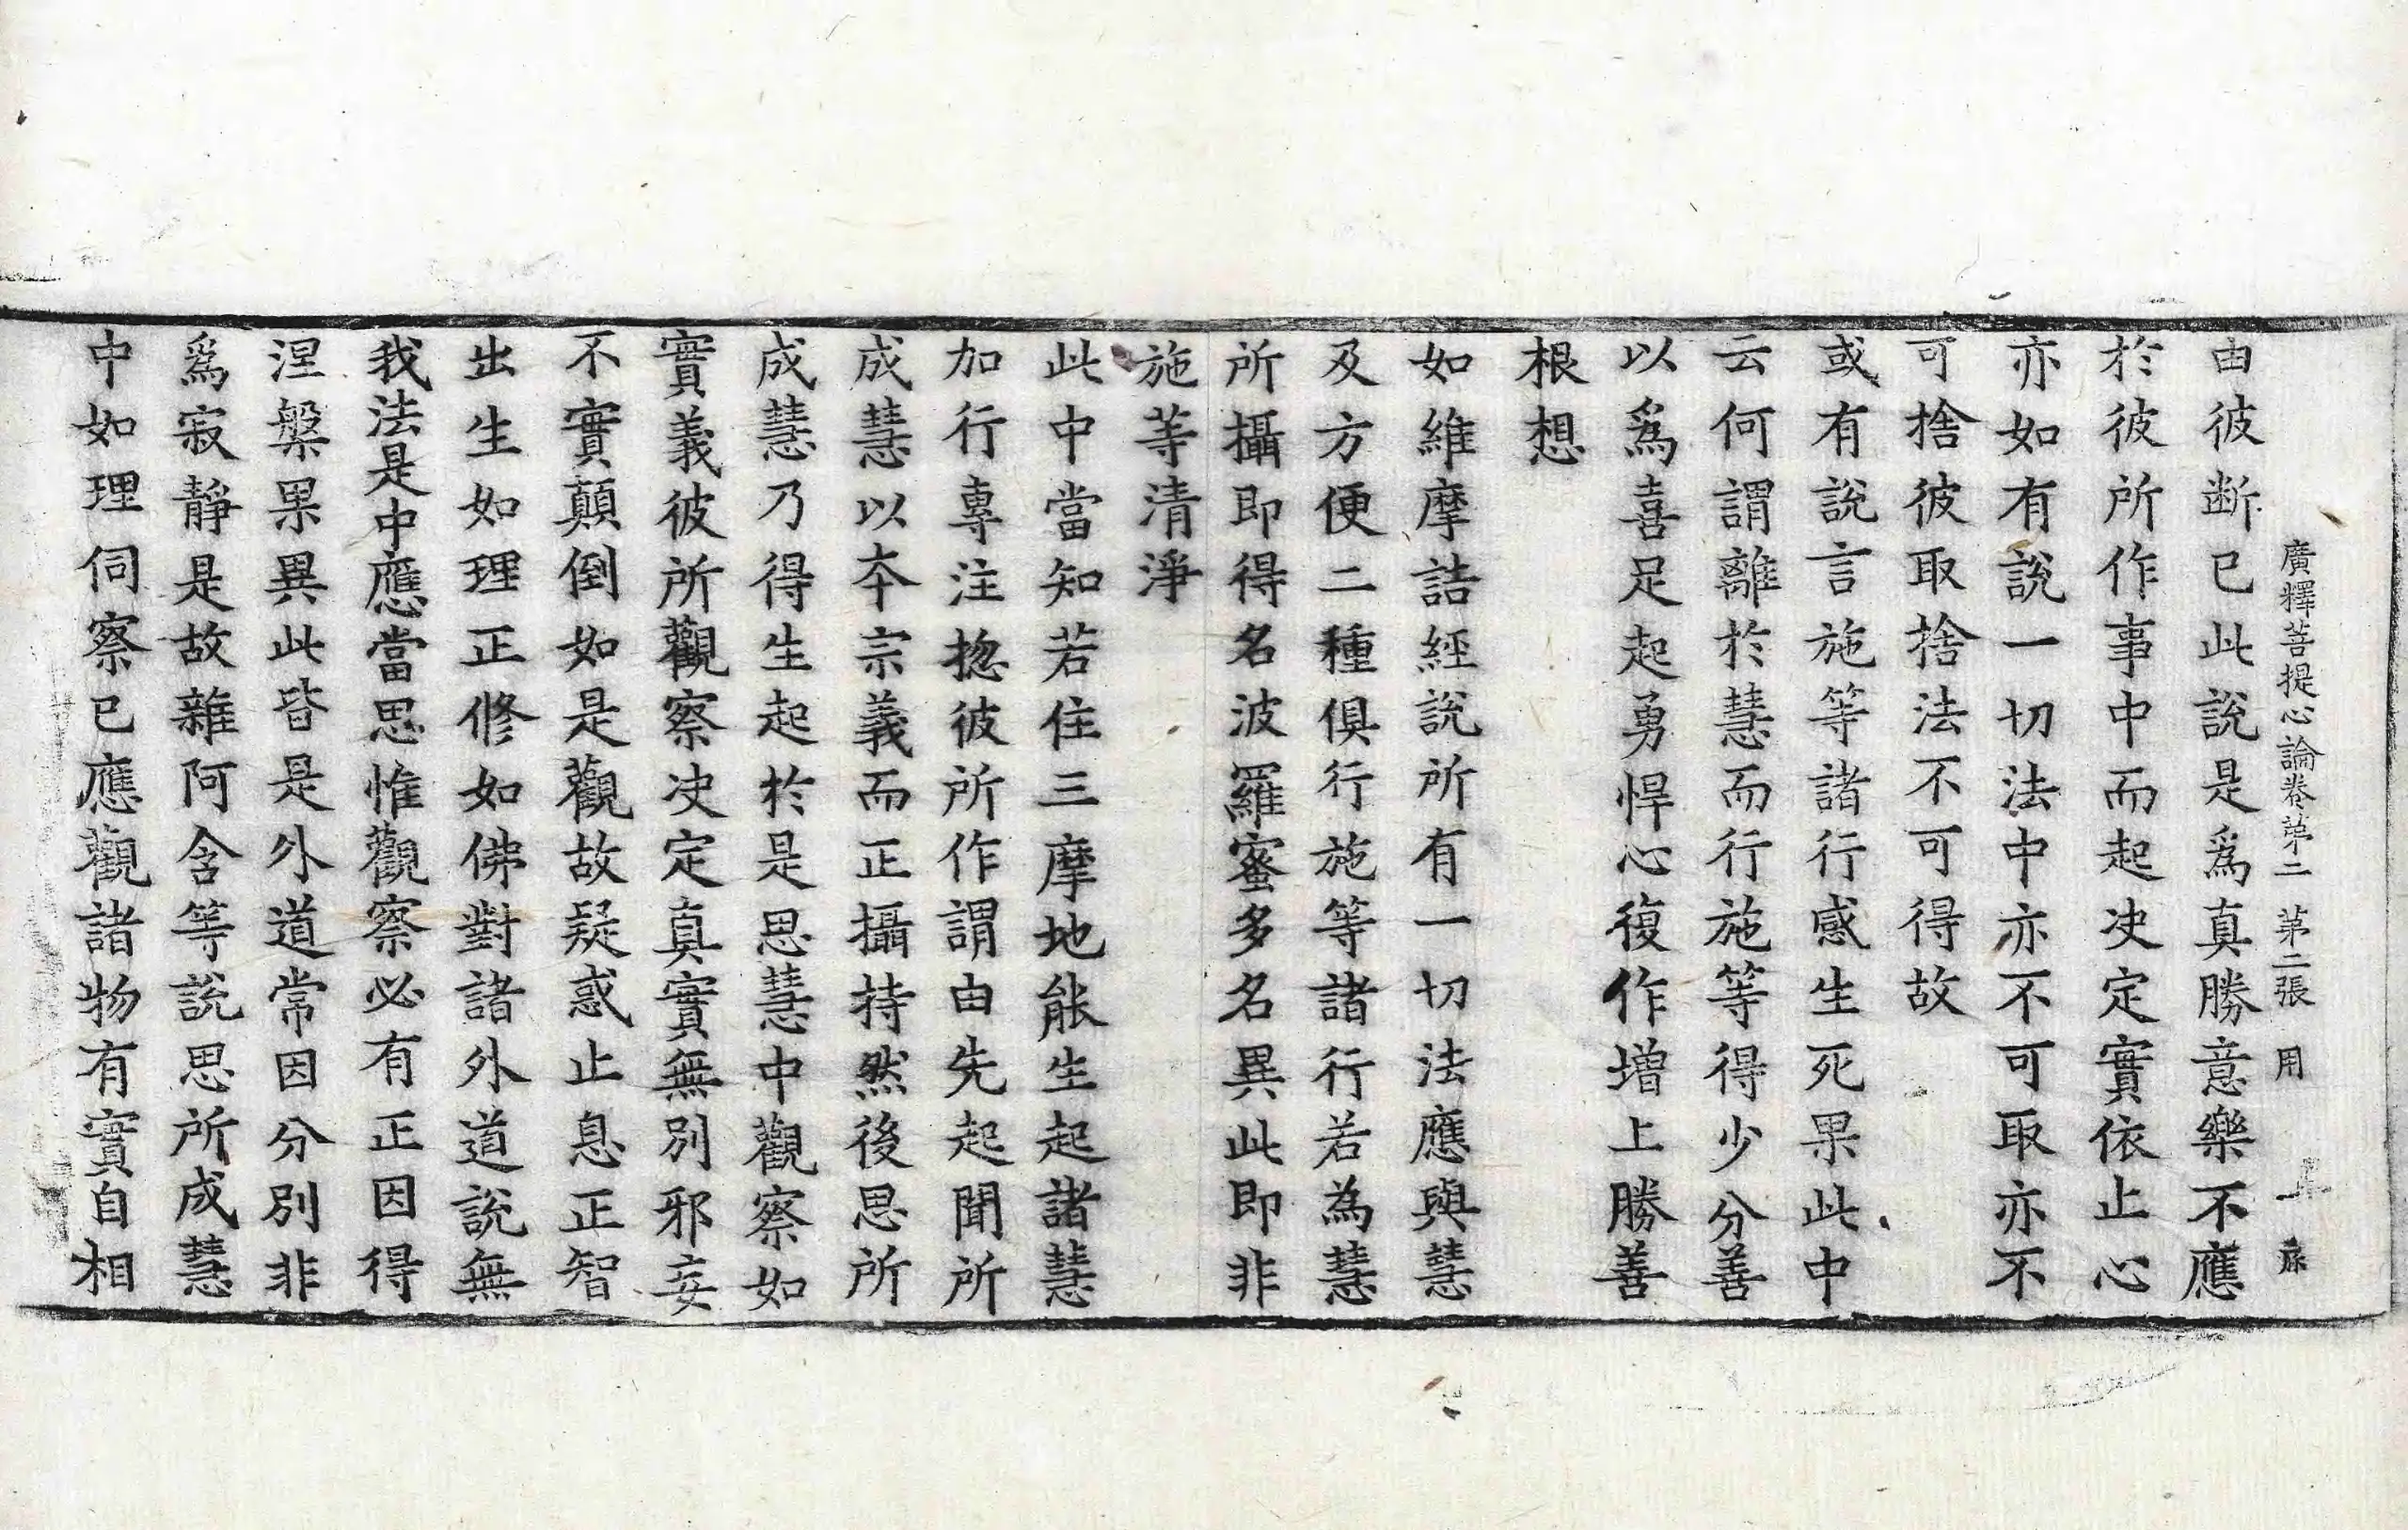 廣釋菩提心論卷第二 第二張 用
由彼断已此說是爲真勝意樂不應
於彼所作事中而起决定實依止心
亦如有說一切法中亦不可取亦不
可捨彼取捨法不可得故
或有說言施等諸行感生死果此中
云何謂離於慧而行施等得少分善
以爲喜足起勇悍心復作增上勝善
根想
如維摩詰經說所有一切法應與慧
及方便二種俱行施等諸行若為慧
所攝即得名波羅蜜多名異此即非
施等清淨
此中當知若住三摩地能生起諸慧
加行專注揔彼所作謂由先起聞所
成慧以本宗義而正攝持然後思所
成慧乃得生起於是思慧中觀察如
實義彼所觀察决定真實無別邪妄
不實顛倒如是觀故疑惑止息正智
出生如理正修如佛對諸外道說無
我法是中應當思惟觀察必有正因得
涅槃果異此皆是外道常因分別非
爲寂靜是故雜阿含等說思所成慧
中如理伺察已應觀諸物有實自相